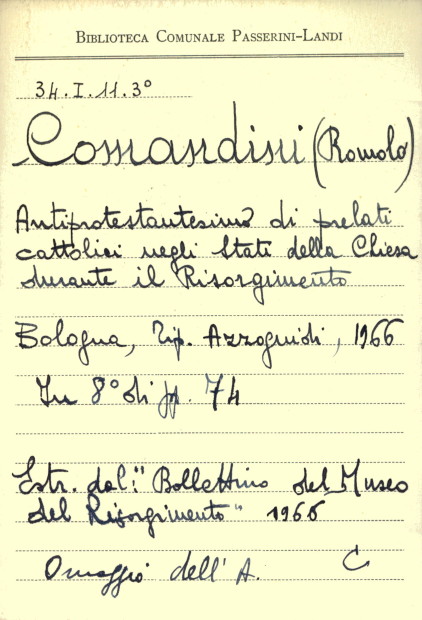 BIBLIOTECA COMUNALE PASSERINI-LANDI
34.I.11.3°
Comandini (Romolo)
Antiprotestantesimo di prelati
cattolici negli Stati della Chiesa
durante il Risorgimento
Bologna, Tip. Azzoguidi, 1966
In 8° di pp. 74
Estr. dal: "Bollettino del Museo
del Risorgimento" 1966
Omaggio dell'A. C